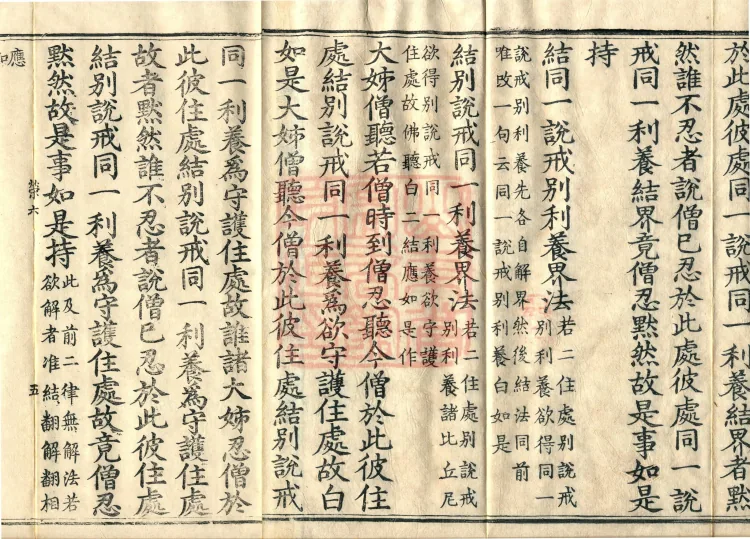 於此處彼處同一說戒同一利養結界者黙
然誰不忍者說僧已忍於此處彼處同一說
戒同一利養結界竟僧忍黙然故是事如是
持
結同一說戒別利養界法
若二住處別說戒
別利養欲得同一
說戒別利養先各自解界然後結法同前
唯改一句云同一說戒別利養白如是
結別說戒同一利養界法
若二住處別說戒
別利養諸比丘尼
欲得別說戒同一利養欲守護
住處故佛聽白二結應如是作
大姊僧聽若僧時到僧忍聽今僧於此彼住
處結別說戒同一利養爲欲守護住處故白
如是大姊僧聽今僧於此彼住處結別說戒
同一利養爲守護住處故誰諸大姊忍僧於
此彼住處結別說戒同一利養爲守護住處
故者黙然誰不忍者說僧已忍於此彼住處
結別說戒同一利養爲守護住處故竟僧忍
黙然故是事如是持
此及前二律無解法若
欲解者准結翻解翻相
六 五
應